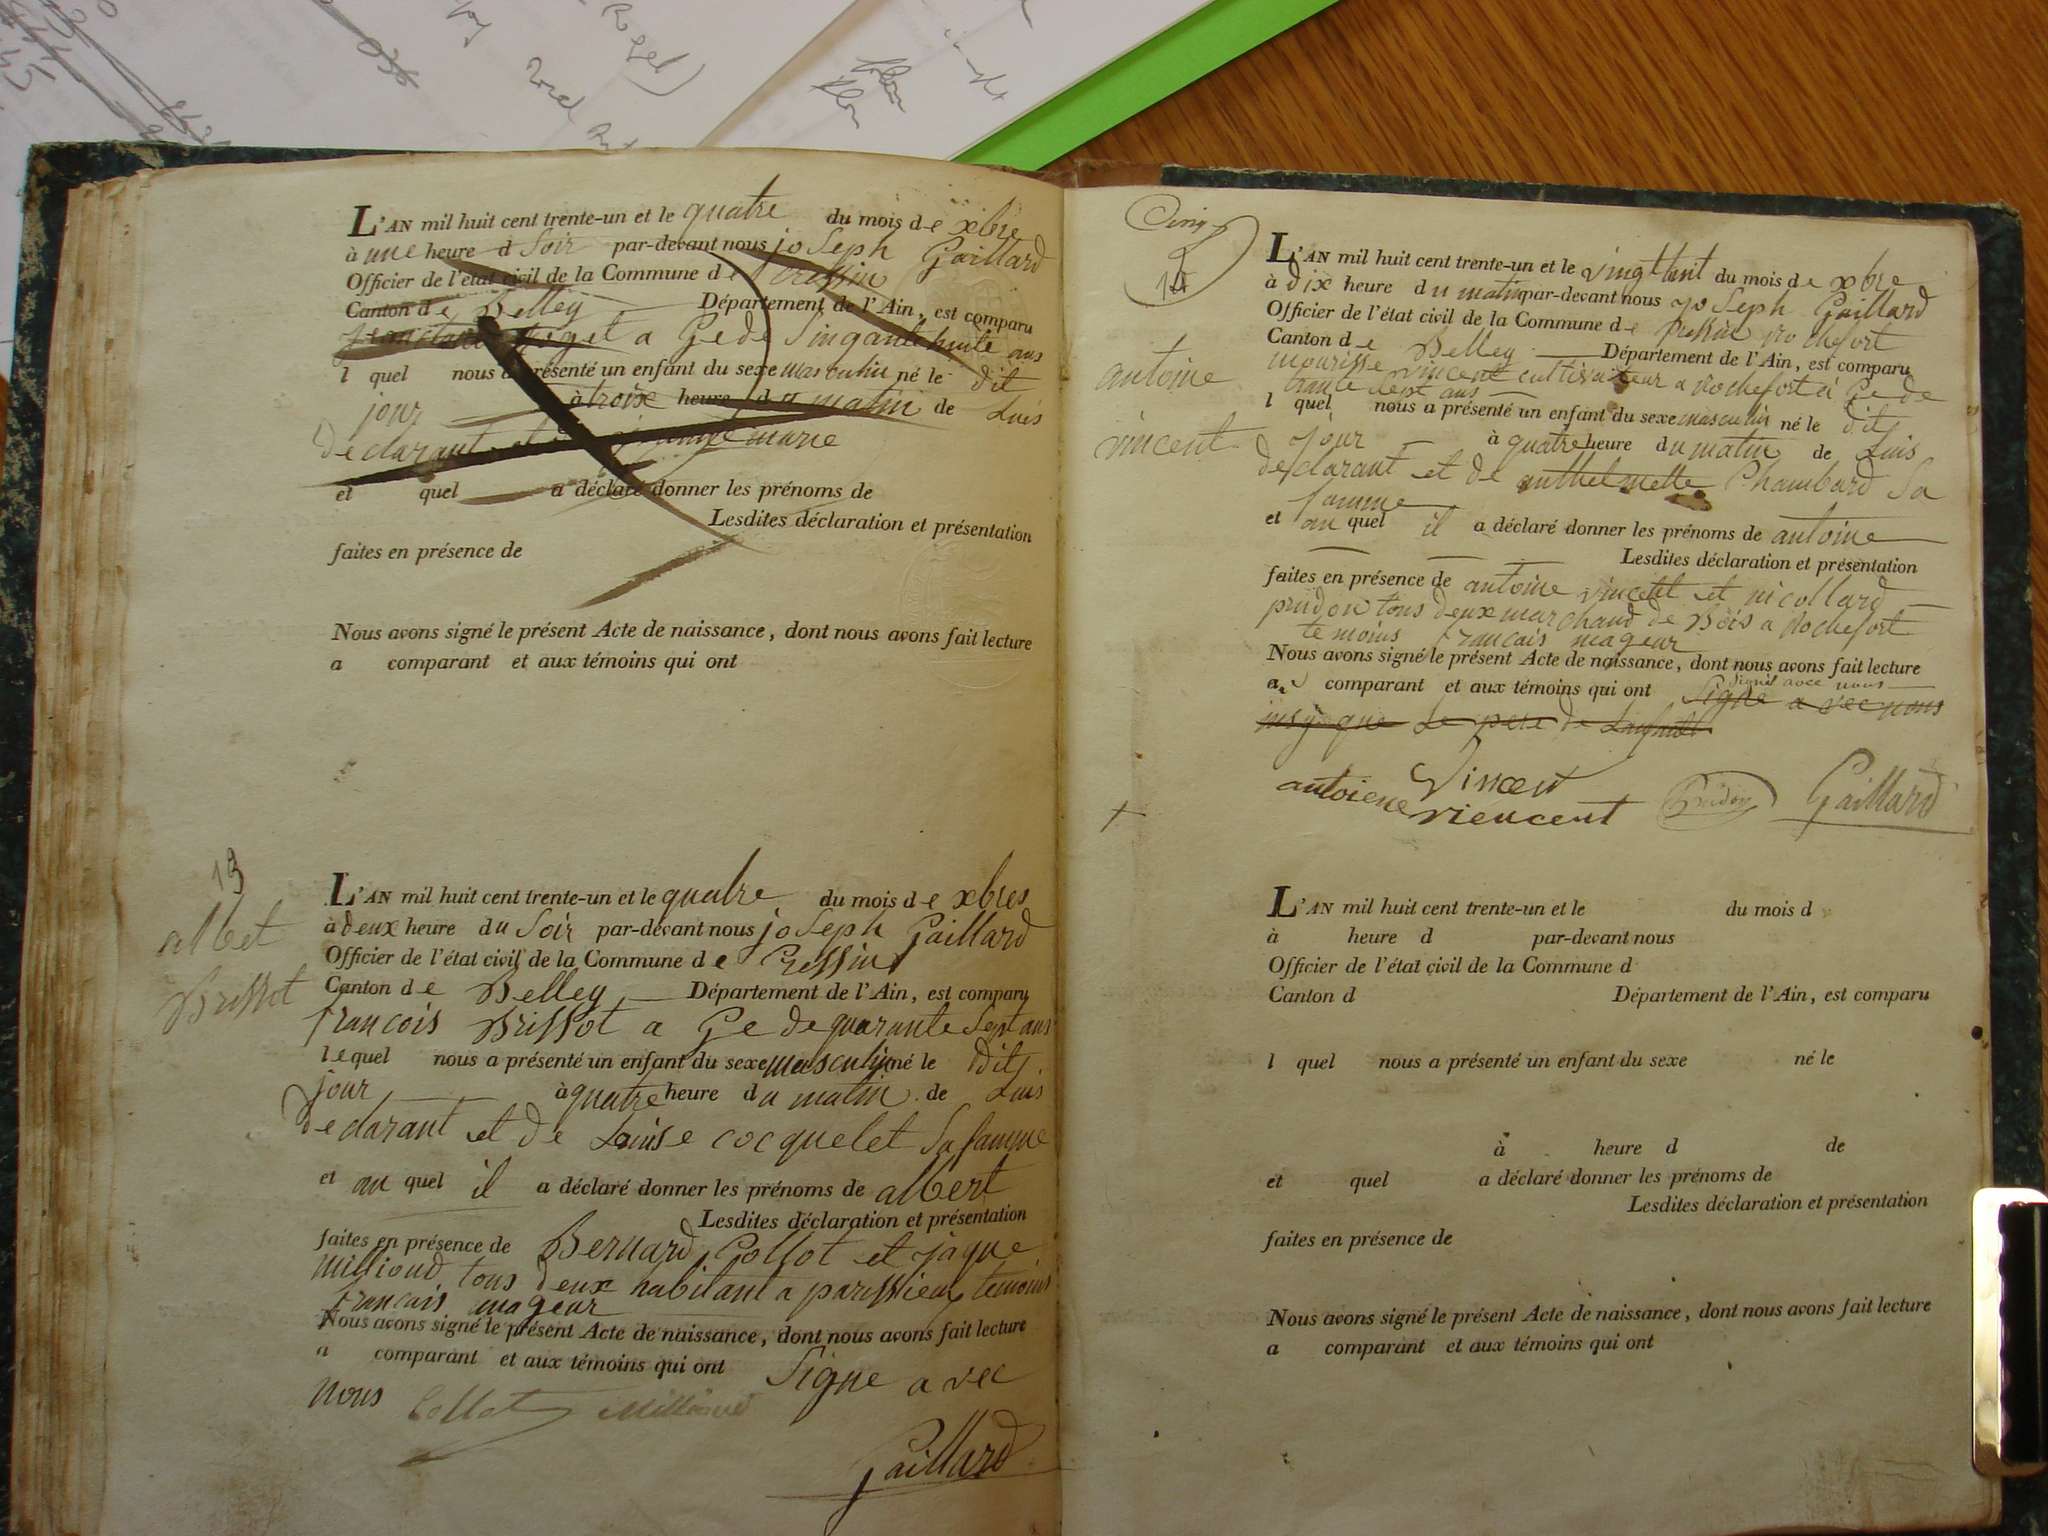 L'AN mil huit cent trente-un et le quatre du mois de xbre
à une heure d Soir par-devant nous joSeph Gaillard
Officier de l'état civil de la Commune de Cressin
Canton de Belley Département de l'Ain, est comparu
a Gede Sinquante huite ans
l quel nous a présenté un enfant du sexe masculin né le dit
jour à troix heure du matin de Luis
declarant et marie
et quel a déclaré donner les prénoms de
Lesdites déclaration et présentation
faites en présence de
Nous avons signé le présent Acte de naissance, dont nous avons fait lecture
a comparant et aux témoins qui ont
13
albet
Brissot
L'AN mil huit cent trente-un et le quatre du mois de xbres
à deux heure du Soir par-devant nous joSeph Gaillard
Officier de l'état civil de la Commune de Cressin
Canton de Belley Département de l'Ain, est comparu
francois Brissot a Ge de quarante Sept ans
lequel nous a présenté un enfant du sexe masculin né le dit
jour à quatre heure du matin de Luis
declarant et de Luise cocquelet Sa famme
et au quel il a déclaré donner les prénoms de albert
Lesdites déclaration et présentation
faites en présence de Bernard Collot et jaque
millioud tous deux habitant a parissieu temoins
francais mageur
Nous avons signé le présent Acte de naissance, dont nous avons fait lecture
a comparant et aux témoins qui ont Signe avec
nous Collot Millioud
Gaillard
Cinq
14
antoine
vincent
L'AN mil huit cent trente-un et le vingt huit du mois de xbre
à dix heure du matin par-devant nous joSeph Gaillard
Officier de l'état civil de la Commune de Cressin Rochefort
Canton de Belley Département de l'Ain, est comparu
mourisse vincent cultivateur a Rochefort a Ge de
trante Sept ans
l quel nous a présenté un enfant du sexe masculin né le dit
jour à quatre heure du matin de Luis
declarant et de anthelmette Chambard Sa
famme
et au quel il a déclaré donner les prénoms de antoine
Lesdites déclaration et présentation
faites en présence de antoine vincent et nicollard
prudon tous deux marchand de Bois a Rochefort
temoins francais mageur
Nous avons signé le présent Acte de naissance, dont nous avons fait lecture
au comparant et aux témoins qui ont Signe avec nous
Signé avec nous
que Le pere de
Vincent
antoiene viencent Prudon Gaillard
L'AN mil huit cent trente-un et le du mois d
à heure d par-devant nous
Officier de l'état civil de la Commune d
Canton d Département de l'Ain, est comparu
l quel nous a présenté un enfant du sexe né le
à heure d de
et quel a déclaré donner les prénoms de
Lesdites déclaration et présentation
faites en présence de
Nous avons signé le présent Acte de naissance, dont nous avons fait lecture
a comparant et aux témoins qui ont